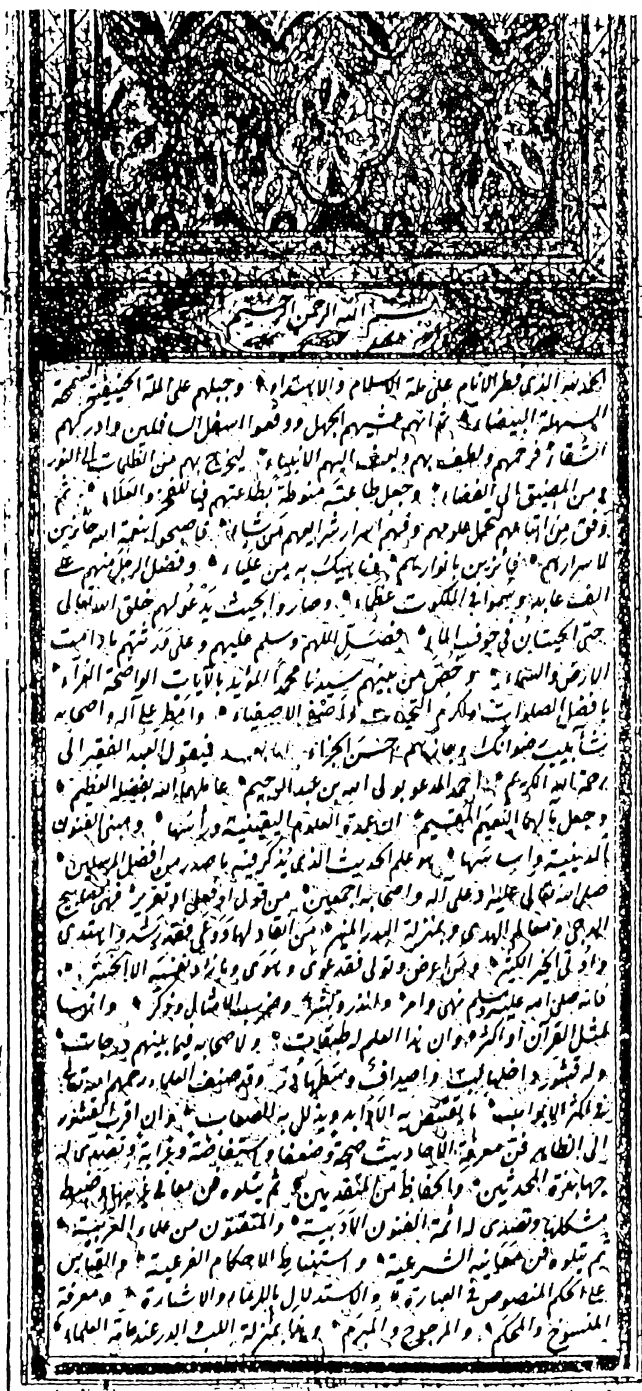 بسم الله الرحمن الرحيم
الحمد لله الذي فطر الأنام على ملة الاسلام والاهتداء وجبلهم على الملة الحنيفية السمحة
السهلة البيضاء ثم انهم غشيهم الجهل ووقعوا اسفل السافلين وادركهم
الشقاء فرحمهم ولطف بهم وبعث اليهم الانبياء ليخرج بهم من الظلمات الى النور
و من المضيق الى الفضاء وجعل طاعته منوطة بطاعتهم فيا للفخر والعلاء ثم
وفق من اتباعهم لتحمل علومهم وفهم اسرار شرايعهم من شاء فاصبحوا بنعمة الله حائزين
لاسرارهم فائزين بانوارهم وناهيك به من علياء وفضل الرجل منهم على
الف عابد وسموا في الملكوت عظماء وصاروا بحيث يدعو لهم خلق الله تعالى
حتى الحيتان في جوف الماء فصل اللهم وسلم عليهم وعلى ورثتهم ما دامت
الارض والسماء وخص من بينهم سيدنا محمدا المؤيد بالآيات الواضحة الغراء
بافضل الصلوات واكرم التحيات واصفى الاصطفاء وامطر على آله واصحابه
شآبيب رضوانك وجازهم احسن الجزاء اما بعد فيقول العبد الفقير الى
رحمة الله الكريم احمد المدعو بولي الله بن عبد الرحيم عاملهما الله بفضله العظيم
وجعل مآلهما النعيم المقيم ان عمدة العلوم اليقينية ورأسها ومبنى الفنون
الدينية واساسها هو علم الحديث الذي يذكر فيه ما صدر من افضل المرسلين
صلى الله تعالى عليه وعلى آله واصحابه اجمعين من قول او فعل او تقرير فهي مصابيح
الدجى ومعالم الهدى وبمنزلة البدر المنير من انقاد لها ووعى فقد رشد واهتدى
واوتي الخير الكثير ومن اعرض وتولى فقد غوى وهوى وما زاد نفسه الا التخسير
فانه صلى الله عليه وسلم نهى وامر وانذر وبشر وضرب الامثال وذكر وانها
لمثل القرآن او اكثر وان هذا العلم له طبقات ولاصحابه فيما بينهم درجات
وله قشور داخلها لب واصداف وسطها در وقد صنف العلماء رحمهم الله تعالى
في اكثر الابواب ما تقتنص به الاوابد ويذلل به الصعاب وان اقرب القشور
الى الظاهر فن معرفة الاحاديث صحة وضعفا واستفاضة وغرابة وتصدى له
جهابذة المحدثين والحفاظ من المتقدمين ثم يتلوه فن معاني غريبها وضبط
مشكلها وتصدى له ائمة الفنون الادبية والمتقنون من علماء العربية
ثم يتلوه فن معانيه الشرعية واستنباط الاحكام الفرعية والقياس
على الحكم المنصوص في العبارة والاستدلال بالايماء والاشارة ومعرفة
المنسوخ والمحكم والمرجوح والمبرم وهذا بمنزلة اللب والدر عند عامة العلماء